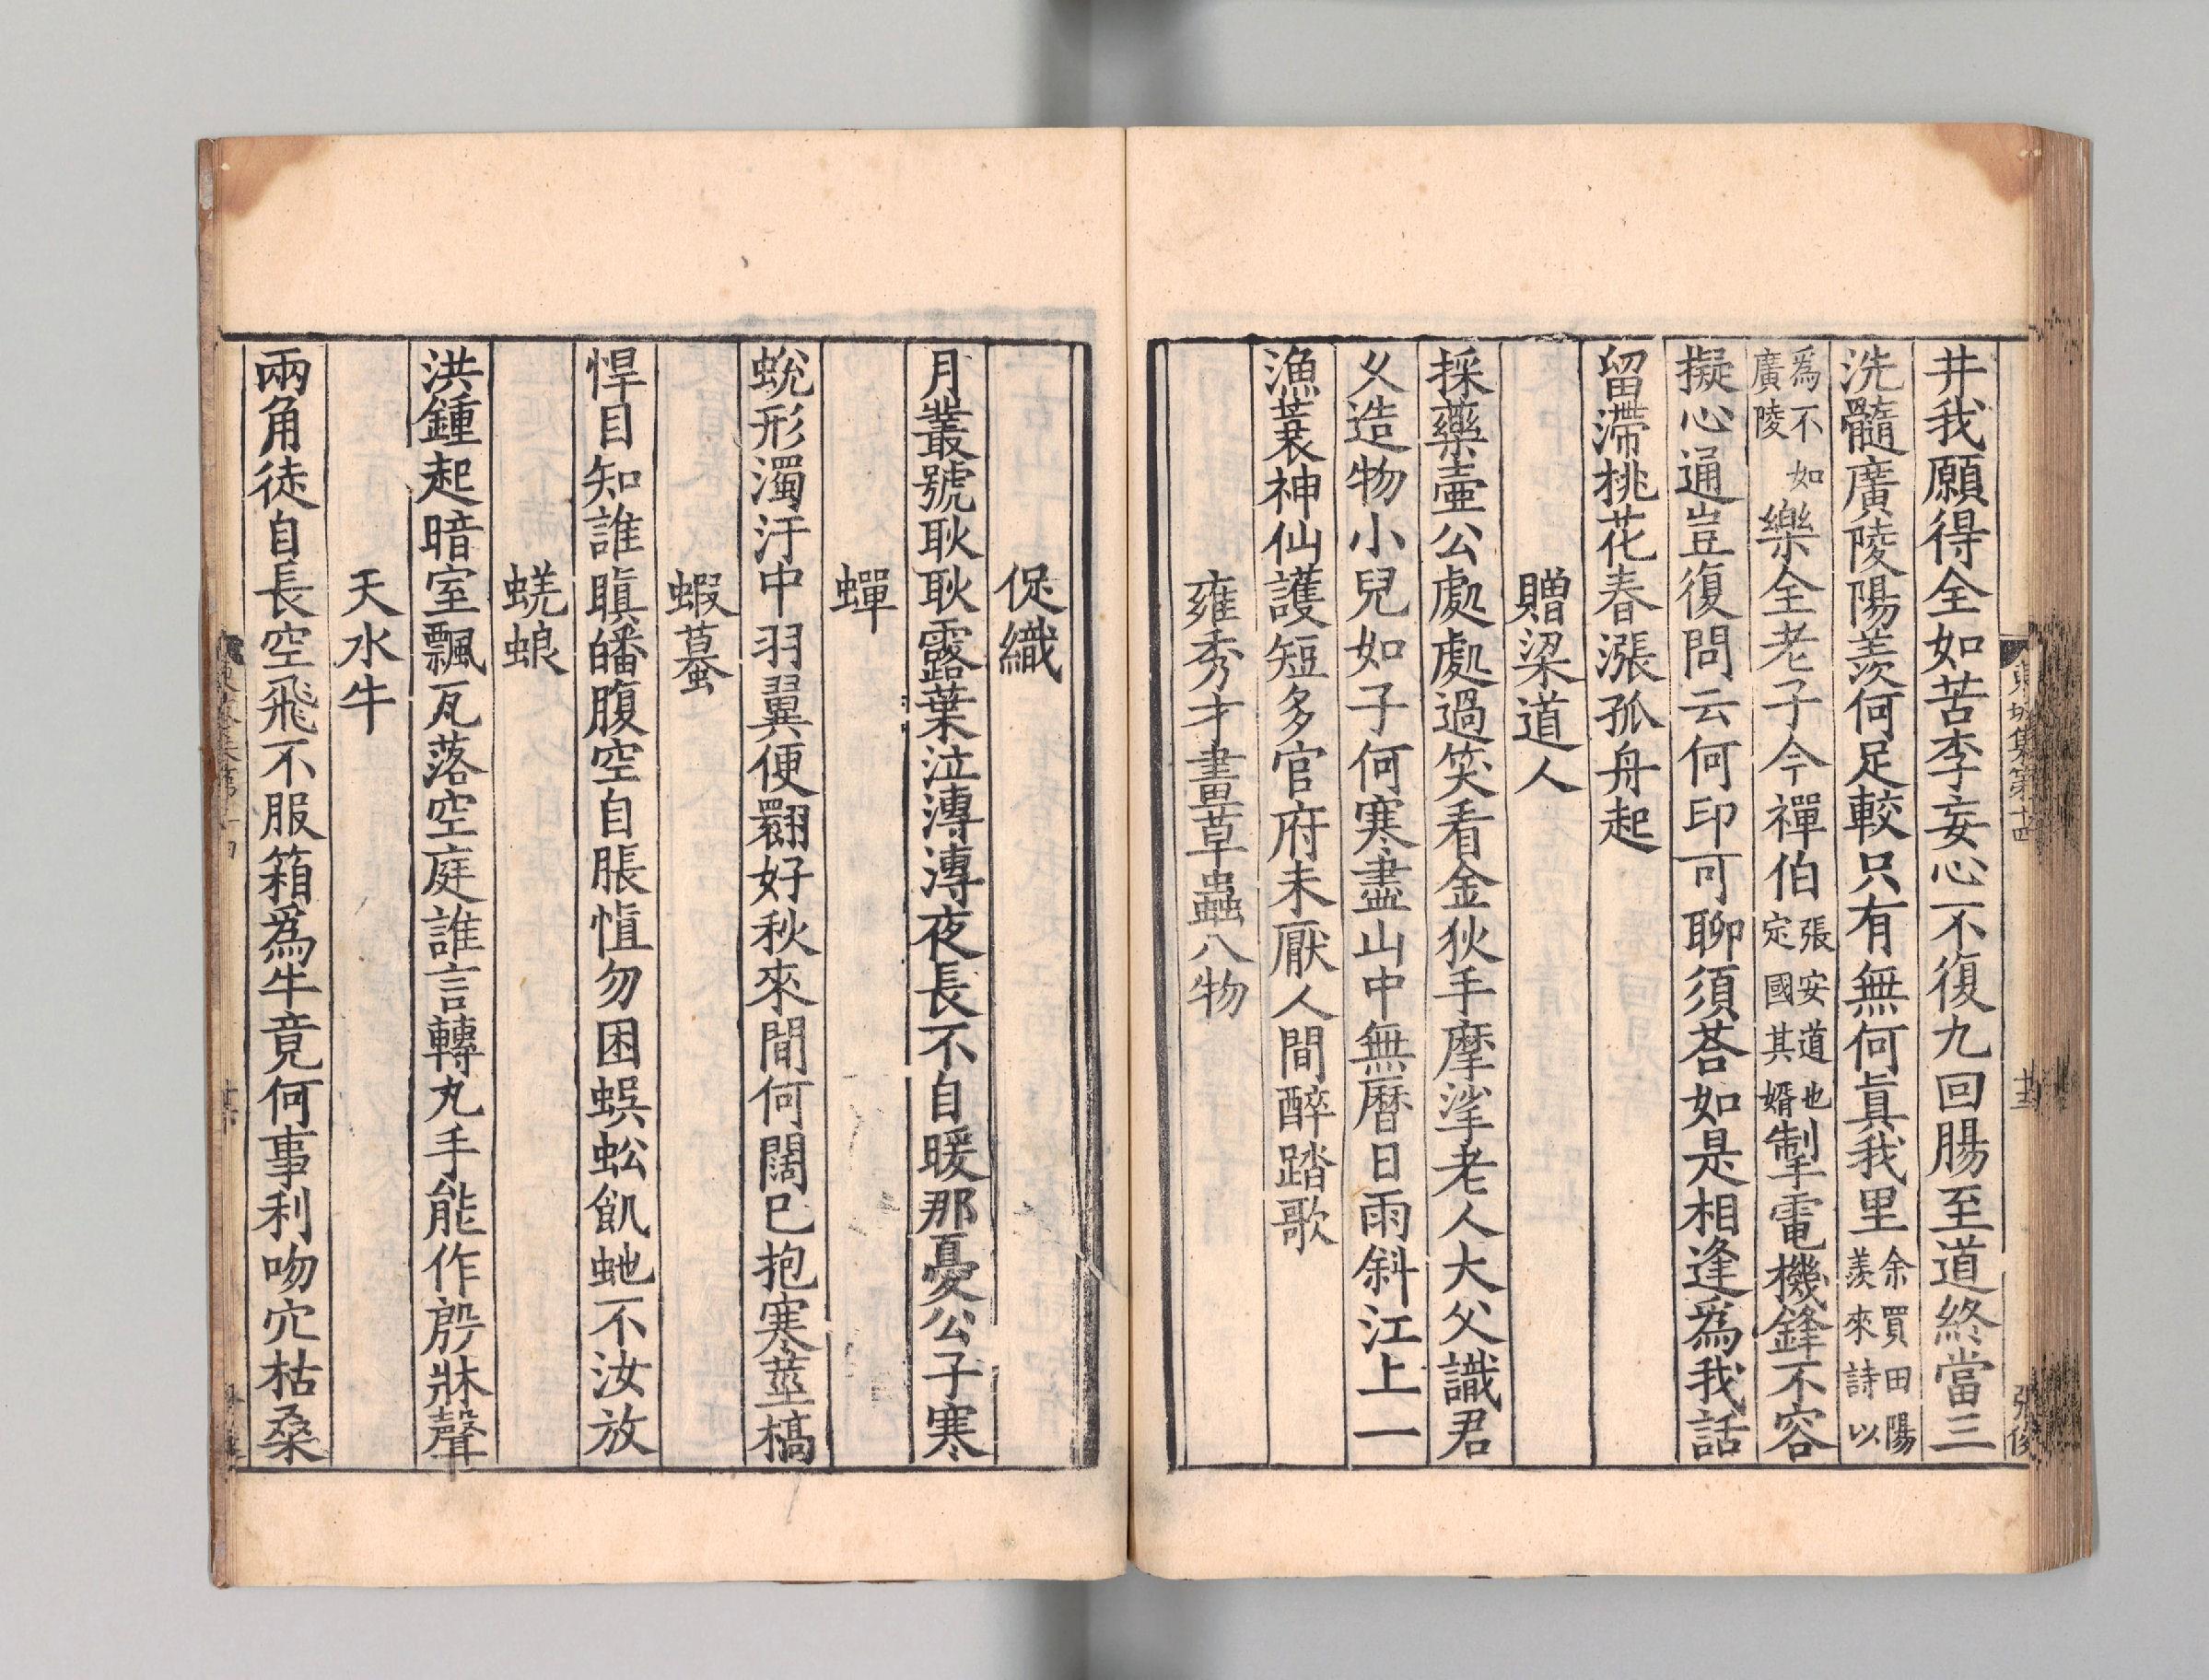 東坡集第十四
十三
張俊
井我願得全如苦李妄心不復九回腸至道終當三
洗髓廣陵陽羨何足較只有無何真我里余買田陽羨來詩以
爲不如廣陵樂全老子今禪伯張安道也定國其婿掣電機鋒不容
擬心通豈復問云何印可聊須荅如是相逢爲我話
留滯桃花春漲孤舟起
贈梁道人
採藥壷公處處過笑看金狄手摩挲老人大父識君
乆造物小兒如子何寒盡山中無曆日雨斜江上一
漁蓑神仙護短多官府未厭人間醉踏歌
雍秀才畫草蟲八物
促織
月叢號耿耿露葉泣漙漙夜長不自暖那憂公子寒
蟬
蛻形濁汙中羽翼便翾好秋來間何闊已抱寒莖槁
蝦蟇
悍目知誰瞋皤腹空自脹慎勿困蜈蚣飢虵不汝放
蜣蜋
洪鍾起暗室飄瓦落空庭誰言轉丸手能作殷牀聲
天水牛
兩角徒自長空飛不服箱爲牛竟何事利吻穴枯桑